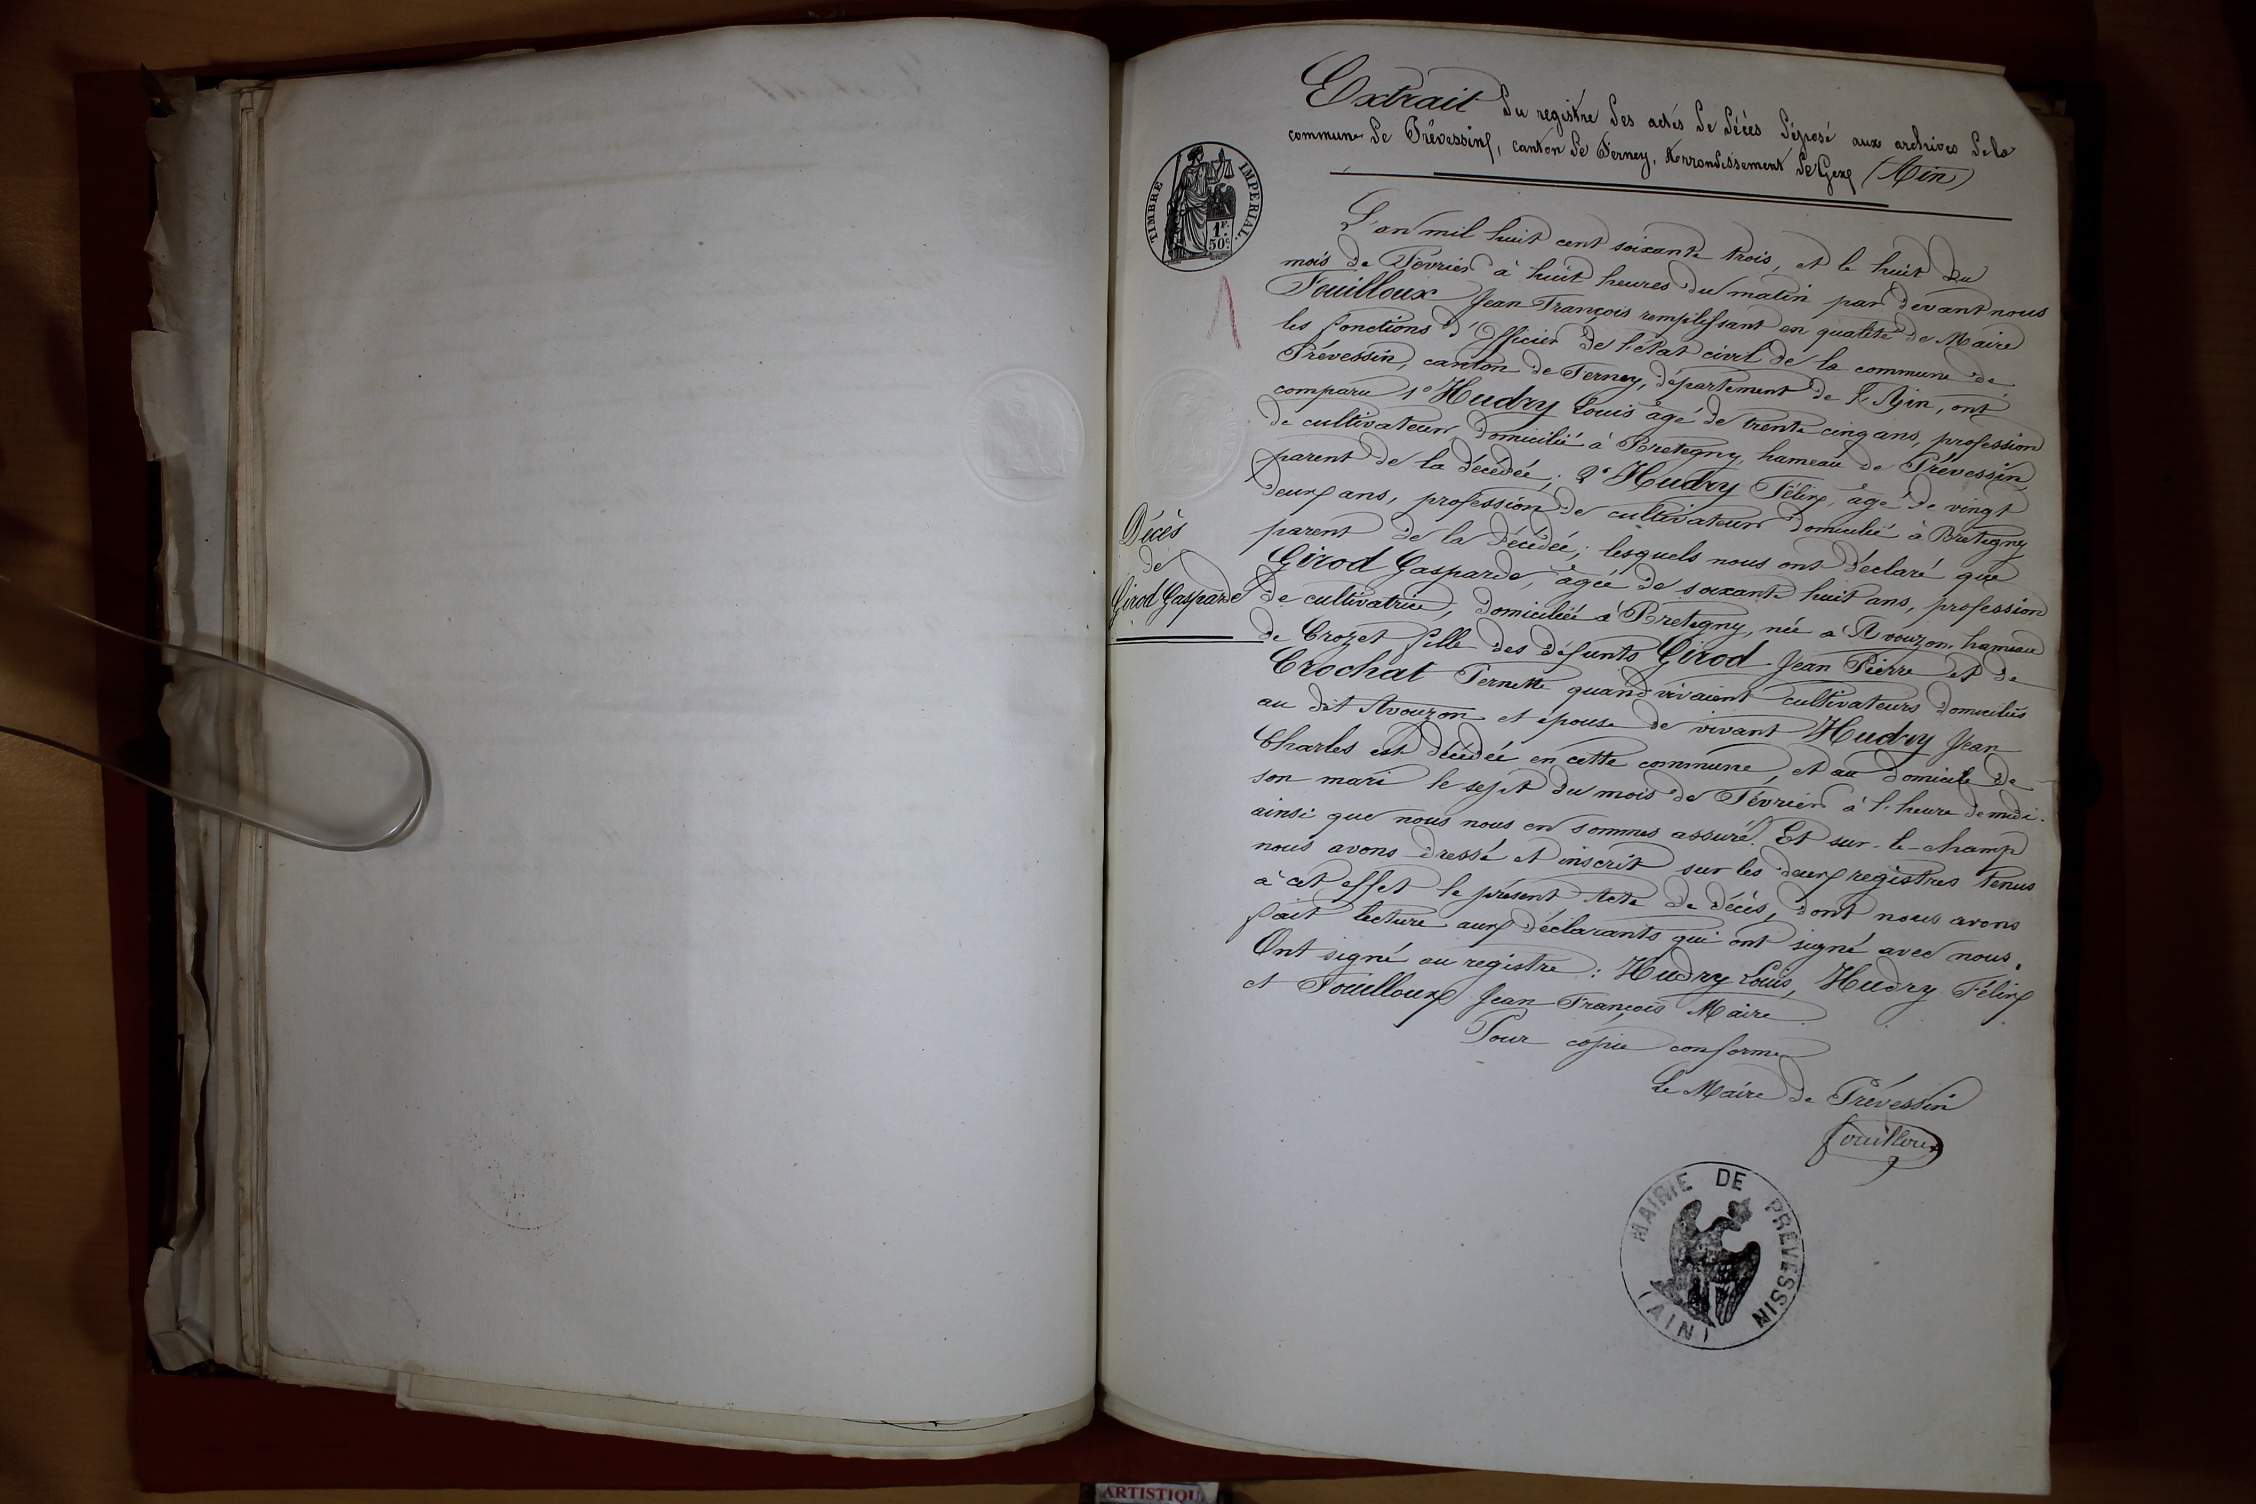 Extrait du registre des actes de décès déposé aux archives de la
commune de Prévessin, canton de Ferney, Arrondissement de Gex (Ain)
TIMBRE IMPERIAL.
1F.
50c
L'an mil huit cent soixante trois, et le huit du
mois de Février à huit heures du matin par devant nous
Fouilloux Jean François remplissant en qualité de Maire
les fonctions d'Officier de l'état civil de la commune de
Prévessin, canton de Ferney, département de l'Ain, ont
comparu 1° Hudry Louis âgé de trente cinq ans, profession
de cultivateur domicilié à Bretegny, hameau de Prévessin,
parent de la décédée; 2° Hudry Félix, âgé de vingt
deux ans, profession de cultivateur domicilié à Bretegny
parent de la décédée; lesquels nous ont déclaré que
Girod Gasparde, âgée de soixante huit ans, profession
de cultivatrice, domiciliée à Bretegny, née à Avouzon, hameau
de Crozet fille des défunts Girod Jean Pierre et de
Crochat Pernette quand vivaient cultivateurs domiciliés
au dit Avouzon et épouse de vivant Hudry Jean
Charles est décédée en cette commune, et au domicile de
son mari le sept du mois de Février à l'heure de midi.
ainsi que nous nous en sommes assuré. Et sur-le-champ
nous avons dressé et inscrit sur les deux registres tenus
à cet effet le présent Acte de décès, dont nous avons
fait lecture aux déclarants qui ont signé avec nous.
Ont signé au registre: Hudry Louis, Hudry Félix
et Fouilloux Jean François Maire.
Pour copie conforme
Le Maire de Prévessin
Fouilloux
MAIRIE DE PREVESSIN
(AIN)
Décès
de
Girod Gasparde
ARTISTIQU